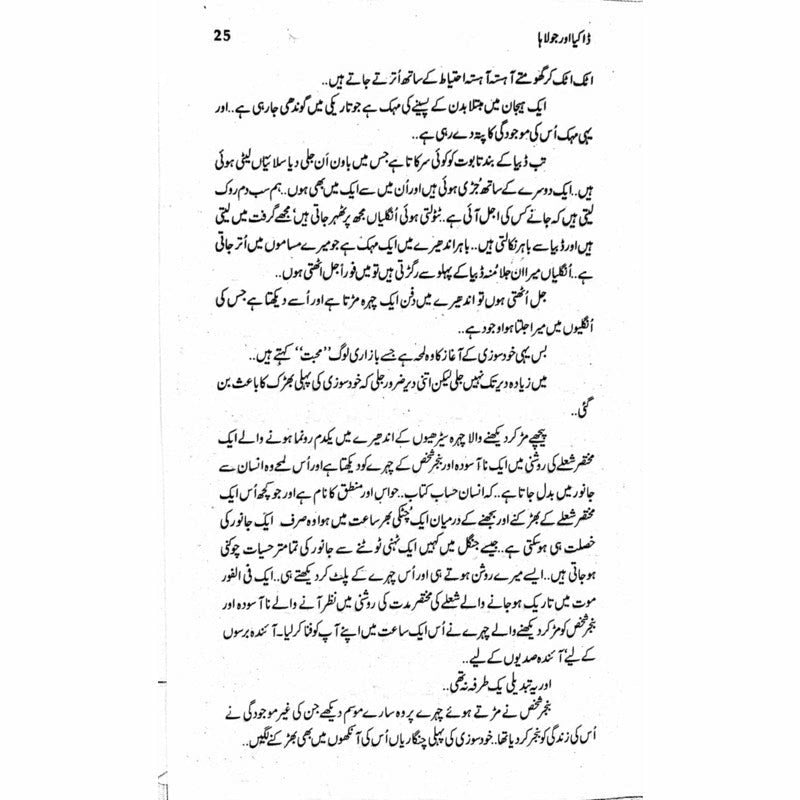 ڈاکیا اور جولاہا 25
اٹک اٹک کر گھومتے آہستہ آہستہ احتیاط کے ساتھ اُترتے جاتے ہیں..
ایک ہیجان میں مبتلا بدن کے پسینے کی مہک ہے جو تاریکی میں گوندھی جا رہی ہے.. اور
یہی مہک اُس کی موجودگی کا پتہ دے رہی ہے..
تب ڈبیا کے بند تابوت کو کوئی سرکاتا ہے جس میں باون اَن جلی دیا سلائیاں لیٹی ہوئی
ہیں.. ایک دوسرے کے ساتھ جُڑی ہوئی ہیں اور اُن میں سے ایک میں بھی ہوں.. ہم سب دم روک
لیتی ہیں کہ جانے کس کی اجل آئی ہے.. ٹٹولتی ہوئی اُنگلیاں مجھ پر ٹھہر جاتی ہیں‘ مجھے گرفت میں لیتی
ہیں اور ڈبیا سے باہر نکالتی ہیں.. باہر اندھیرے میں ایک مہک ہے جو میرے مساموں میں اُتر جاتی
ہے.. اُنگلیاں میرا اَن جلا مُنہ ڈبیا کے پہلو سے رگڑتی ہیں تو میں فوراً جل اُٹھتی ہوں..
جل اُٹھتی ہوں تو اندھیرے میں دفن ایک چہرہ مڑتا ہے اور اُسے دیکھتا ہے جس کی
اُنگلیوں میں میرا جلتا ہوا وجود ہے..
بس یہی خود سوزی کے آغاز کا وہ لمحہ ہے جسے بازاری لوگ ’’محبت‘‘ کہتے ہیں..
میں زیادہ دیر تک نہیں جلی لیکن اتنی دیر ضرور جلی کہ خود سوزی کی پہلی بھڑک کا باعث بن
گئی..
پیچھے مڑ کر دیکھنے والا چہرہ سیڑھیوں کے اندھیرے میں یکدم رونما ہونے والے ایک
مختصر شعلے کی روشنی میں ایک ناآسودہ اور بنجر شخص کے چہرے کو دیکھتا ہے اور اُس لمحے وہ انسان سے
جانور میں بدل جاتا ہے.. کہ انسان حساب کتاب.. حواس اور منطق کا نام ہے اور جو کچھ اُس ایک
مختصر شعلے کے بھڑکنے اور بجھنے کے درمیان ایک چُٹکی بھر ساعت میں ہوا وہ صرف ایک جانور کی
خصلت ہی ہو سکتی ہے.. جیسے جنگل میں کہیں ایک ٹہنی ٹوٹنے سے جانور کی تمام تر حسیات چوکنی
ہو جاتی ہیں.. ایسے میرے روشن ہوتے ہی اور اُس چہرے کے پلٹ کر دیکھتے ہی.. ایک فی الفور
موت میں تاریک ہو جانے والے شعلے کی مختصر مدت کی روشنی میں نظر آنے والے ناآسودہ اور
بنجر شخص کو مڑ کر دیکھنے والے چہرے نے اُس ایک ساعت میں اپنے آپ کو فنا کر لیا۔ آئندہ برسوں
کے لیے‘ آئندہ صدیوں کے لیے..
اور یہ تبدیلی یک طرفہ نہ تھی..
بنجر شخص نے مڑتے ہوئے چہرے پر وہ سارے موسم دیکھے جن کی غیر موجودگی نے
اُس کی زندگی کو بنجر کر دیا تھا.. خود سوزی کی پہلی چنگاریاں اُس کی آنکھوں میں بھی بھڑکنے لگیں..